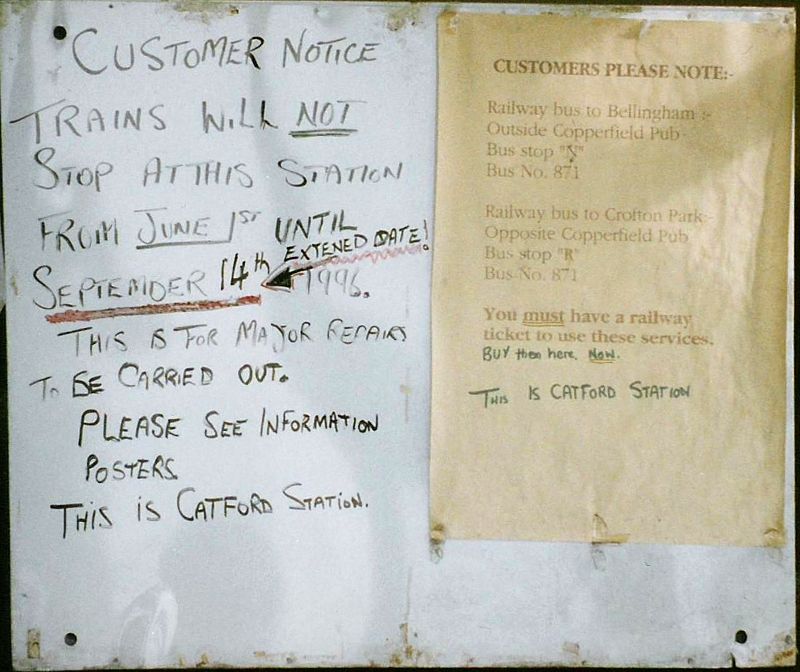 CUSTOMER NOTICE
TRAINS WILL NOT
STOP AT THIS STATION
FROM JUNE 1ST UNTIL
EXTENED DATE!
SEPTEMBER 14th 1996.
THIS IS FOR MAJOR REPAIRS
TO BE CARRIED OUT.
PLEASE SEE INFORMATION
POSTERS
THIS IS CATFORD STATION.
CUSTOMERS PLEASE NOTE:-
Railway bus to Bellingham :-
Outside Copperfield Pub
Bus stop "S"
Bus No. 871
Railway bus to Crofton Park:-
Opposite Copperfield Pub
Bus stop "R"
Bus No. 871
You must have a railway
ticket to use these services.
BUY them here, NOW.
THIS IS CATFORD STATION